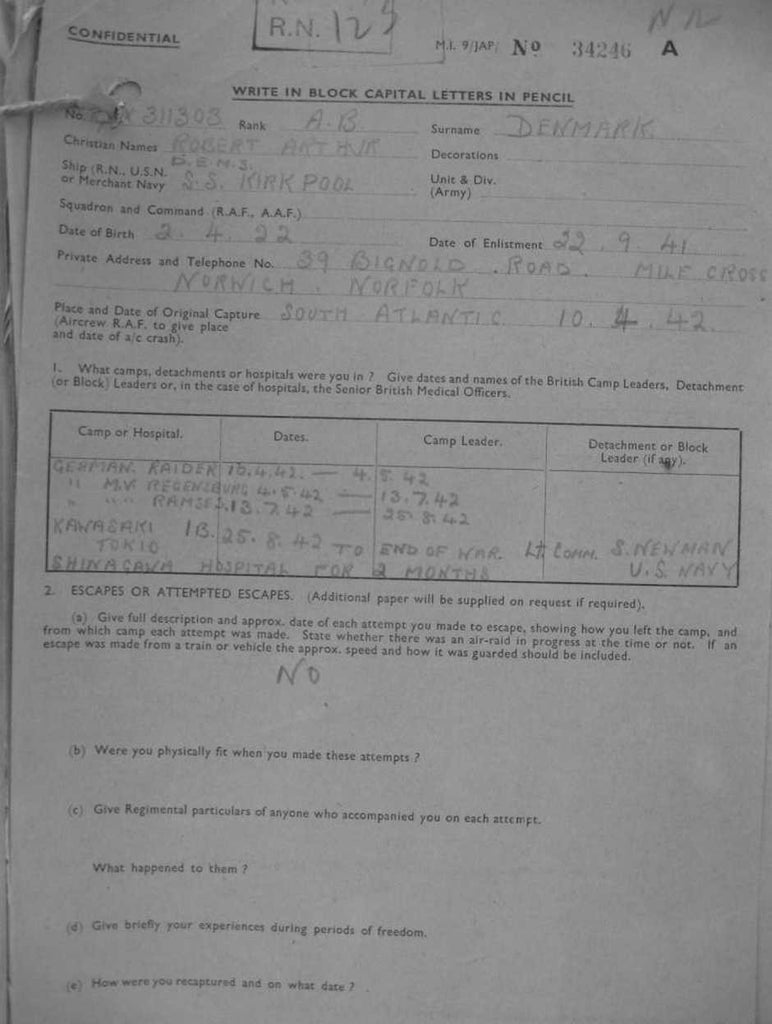 CONFIDENTIAL
R.N. 125
NIL
M.I. 9/JAP/ No 34246 A
WRITE IN BLOCK CAPITAL LETTERS IN PENCIL
No. X 311303 Rank A.B. Surname DENMARK
Christian Names ROBERT ARTHUR Decorations
D.E.M.S.
Ship (R.N., U.S.N. or Merchant Navy S.S. KIRKPOOL Unit & Div. (Army)
Squadron and Command (R.A.F., A.A.F.)
Date of Birth 2.4.22 Date of Enlistment 22.9.41
Private Address and Telephone No. 39 BIGNOLD ROAD. MILE CROSS
NORWICH. NORFOLK
Place and Date of Original Capture SOUTH ATLANTIC 10.4.42
(Aircrew R.A.F. to give place
and date of a/c crash).
1. What camps, detachments or hospitals were you in ? Give dates and names of the British Camp Leaders, Detachment
(or Block) Leaders or, in the case of hospitals, the Senior British Medical Officers.
Camp or Hospital. Dates. Camp Leader. Detachment or Block
Leader (if any).
GERMAN. RAIDER 10.4.42. — 4.5.42
" M.V. REGENSBURG 4.5.42 — 13.7.42
" "" RAMSES.13.7.42 — 25.8.42
KAWASAKI 1B. 25.8.42 TO END OF WAR. Lt COMM. S. NEWMAN
TOKIO U.S. NAVY
SHINAGAWA HOSPITAL FOR 2 MONTHS
2. ESCAPES OR ATTEMPTED ESCAPES. (Additional paper will be supplied on request if required).
(a) Give full description and approx. date of each attempt you made to escape, showing how you left the camp, and
from which camp each attempt was made. State whether there was an air-raid in progress at the time or not. If an
escape was made from a train or vehicle the approx. speed and how it was guarded should be included.
NO
(b) Were you physically fit when you made these attempts ?
(c) Give Regimental particulars of anyone who accompanied you on each attempt.
What happened to them ?
(d) Give briefly your experiences during periods of freedom.
(e) How were you recaptured and on what date ?